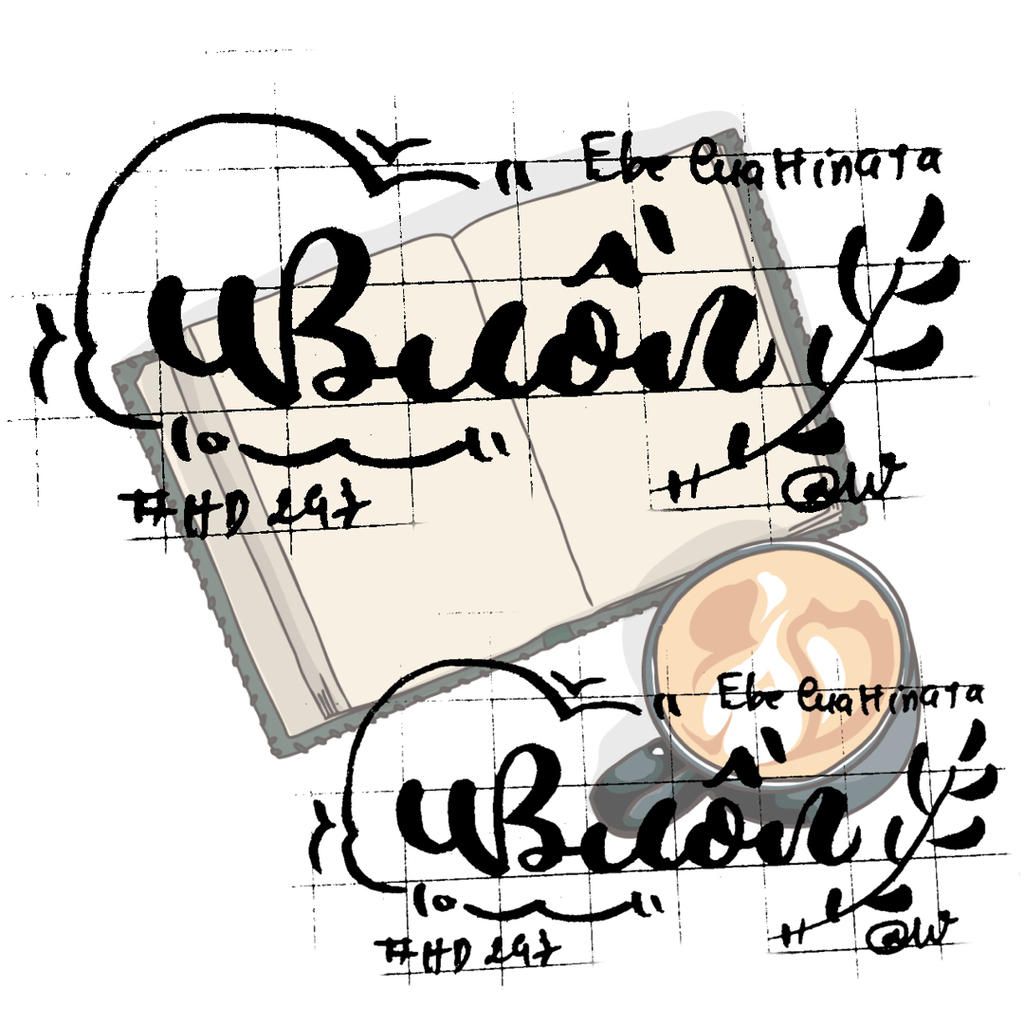 Ebe CuaHinata
Buồn
#HD 247
@W
Ebe CuaHinata
Buồn
#HD 247
@W